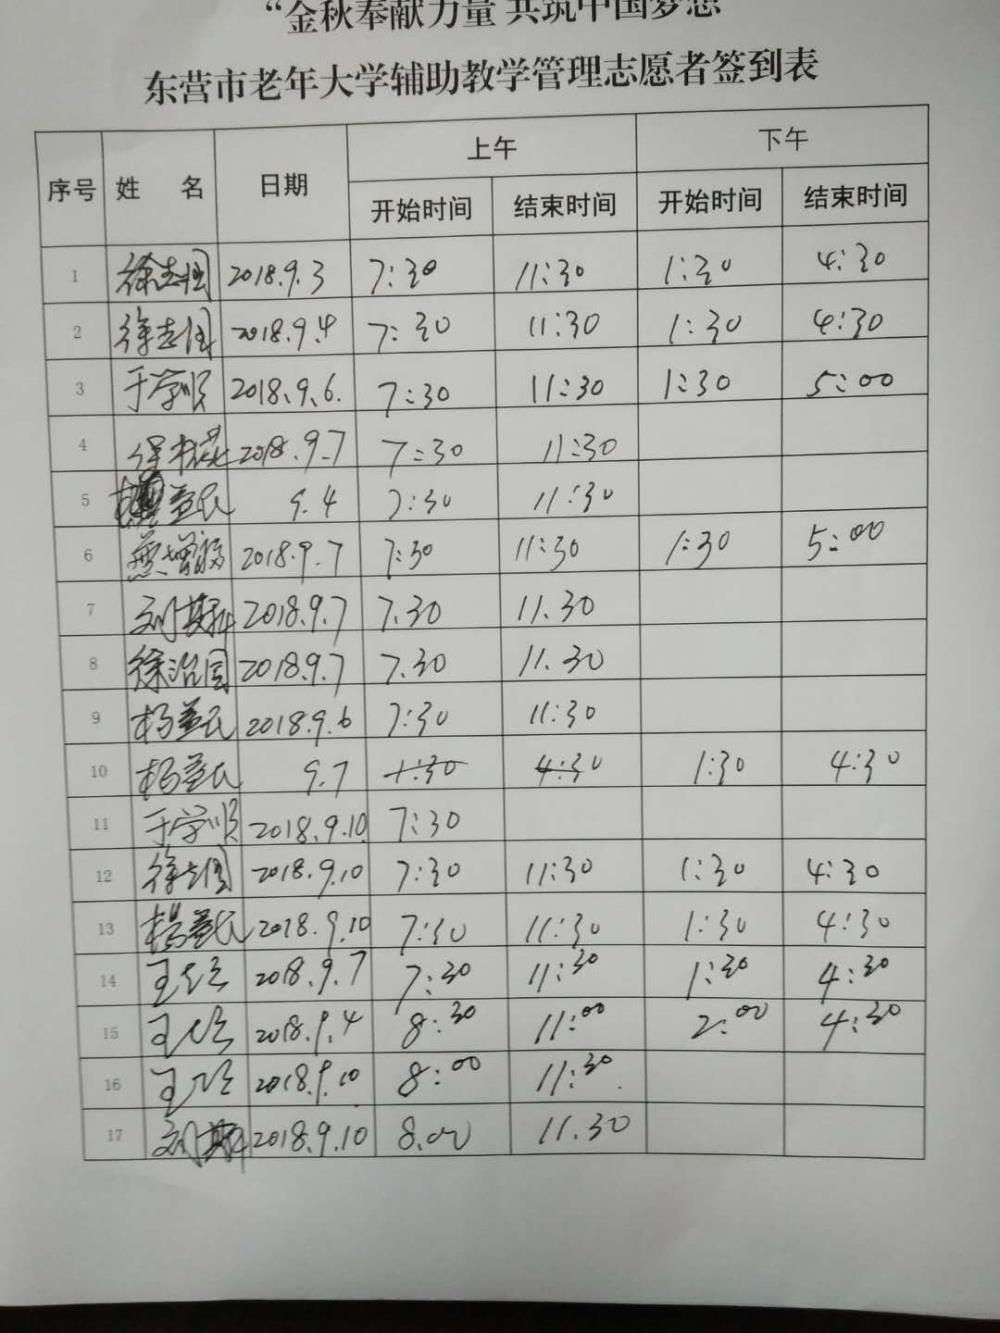 “金秋奉献力量 共筑中国梦想
东营市老年大学辅助教学管理志愿者签到表
序号 姓 名 日期 上午 下午
开始时间 结束时间 开始时间 结束时间
1 徐志国 2018.9.3 7:30 11:30 1:30 4:30
2 徐志国 2018.9.4 7:30 11:30 1:30 4:30
3 于学顺 2018.9.6. 7:30 11:30 1:30 5:00
4 2018.9.7 7:30 11:30
5 杨益民 9.4 7:30 11:30
6 2018.9.7 7:30 11:30 1:30 5:00
7 2018.9.7 7.30 11.30
8 徐治国 2018.9.7 7.30 11.30
9 杨益民 2018.9.6 7:30 11:30
10 杨益民 9.7 1:30 4:30 1:30 4:30
11 于学顺 2018.9.10 7:30
12 徐志国 2018.9.10 7:30 11:30 1:30 4:30
13 杨益民 2018.9.10 7:30 11:30 1:30 4:30
14 2018.9.7 7:30 11:30 1:30 4:30
15 2018.9.4 8:30 11:00 2:00 4:30
16 2018.9.10 8:00 11:30.
17 2018.9.10 8.00 11.30